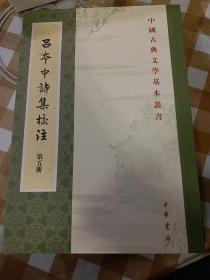 中國古典文學基本叢書
吕本中詩集校注
第五册
中華書局